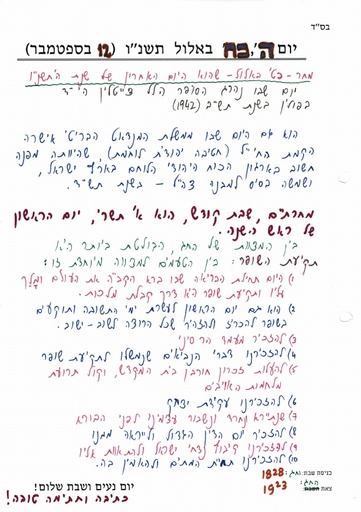 בס״ד
יום ה', כח באלול תשנ״ו (12 בספטמבר)
מחר - כט' באלול - שהוא היום האחרון של שנת ה'תשנ״ו
יום שבו נהרג הסופר הלל צייטלין הי״ד
בפולין בשנת תש״ב (1942)
הוא גם היום שבו ממשלת המנדט הבריטי אישרה
הקמת החי״ל (חטיבה יהודית לוחמת), שהיוותה מפנה
חשוב בארגון הכוח היהודי הלוחם בארץ ישראל,
ושמשה בסיס למבנה צה״ל - בשנת תש״ד.
מחרתיים, שבת קודש, הוא א' תשרי, יום הראשון
של ראש השנה.
בין המצוות של החג, הבולטת ביותר היא
תקיעת השופר: בין הטעמים למצווה מיוחדת זו:
1) היום תחילת הבריאה שבו ברא הקב״ה את העולם ומלך
עליו ותקיעת שופר היא דרך קבלת מלכות.
2) הוא גם יום הראשון לעשרת ימי התשובה ותוקעים
בשופר להכריז ולהזהיר שכל הרוצה לשוב - ישוב.
3) להזכיר מעמד הר סיני
4) להזכירנו דברי הנביאים שנמשלו לתקיעת שופר
5) להעלות זכרון חורבן בית המקדש, וקול תרועת
מלחמות האויבים
6) להזכירנו עקידת יצחק
7) שנתיירא ונחרד ונשבור עצמינו לפני הבורא
8) להזכיר יום הדין הגדול ולייראה ממנו
9) להזכירנו קיבוץ נדחי ישראל ולהתאוות אליו
10) להזכירנו תחיית המתים ולהאמין בה.
כניסת שבת: וחג: 1828
צאת השבת: החג: 1923
יום נעים ושבת שלום!
כתיבה וחתימה טובה!